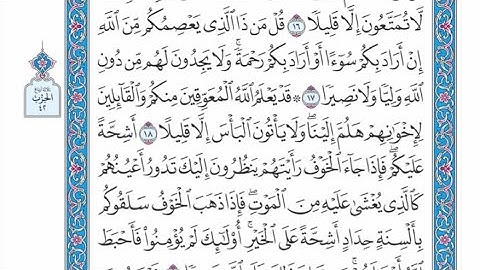 لَّا تُمَتَّعُونَ إِلَّا قَلِيلًا ١٦ قُلْ مَن ذَا ٱلَّذِي يَعْصِمُكُم مِّنَ ٱللَّهِ
إِنْ أَرَادَ بِكُمْ سُوٓءًا أَوْ أَرَادَ بِكُمْ رَحْمَةً ۚ وَلَا يَجِدُونَ لَهُم مِّن دُونِ
ٱللَّهِ وَلِيًّا وَلَا نَصِيرًا ١٧ ۞ قَدْ يَعْلَمُ ٱللَّهُ ٱلْمُعَوِّقِينَ مِنكُمْ وَٱلْقَآئِلِينَ
لِإِخْوَٰنِهِمْ هَلُمَّ إِلَيْنَا ۖ وَلَا يَأْتُونَ ٱلْبَأْسَ إِلَّا قَلِيلًا ١٨ أَشِحَّةً
عَلَيْكُمْ ۖ فَإِذَا جَآءَ ٱلْخَوْفُ رَأَيْتَهُمْ يَنظُرُونَ إِلَيْكَ تَدُورُ أَعْيُنُهُمْ
كَٱلَّذِي يُغْشَىٰ عَلَيْهِ مِنَ ٱلْمَوْتِ ۖ فَإِذَا ذَهَبَ ٱلْخَوْفُ سَلَقُوكُم
بِأَلْسِنَةٍ حِدَادٍ أَشِحَّةً عَلَى ٱلْخَيْرِ ۚ أُو۟لَٰٓئِكَ لَمْ يُؤْمِنُوا۟ فَأَحْبَطَ
الحزب
٤٢